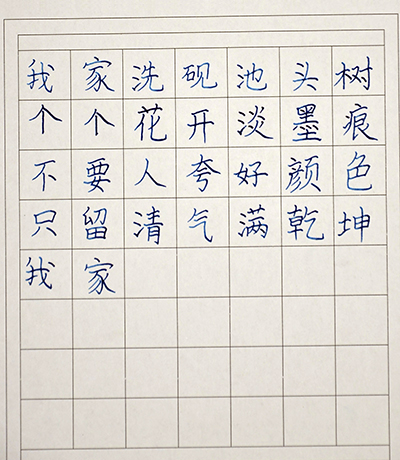 我家洗砚池头树
个个花开淡墨痕
不要人夸好颜色
只留清气满乾坤
我家